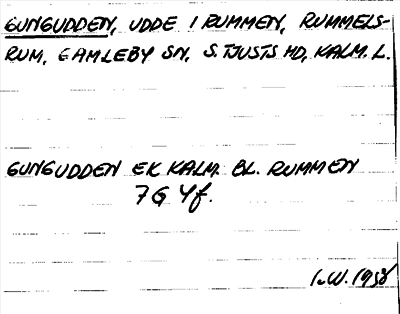 GUNGUDDEN, UDDE I RUMMEN, RUMMELS-
RUM, GAMLEBY SN, S. TJUSTS HD, KALM. L.
GUNGUDDEN EK KALM. BL. RUMMEN
7G 4f.
I.W. 1958